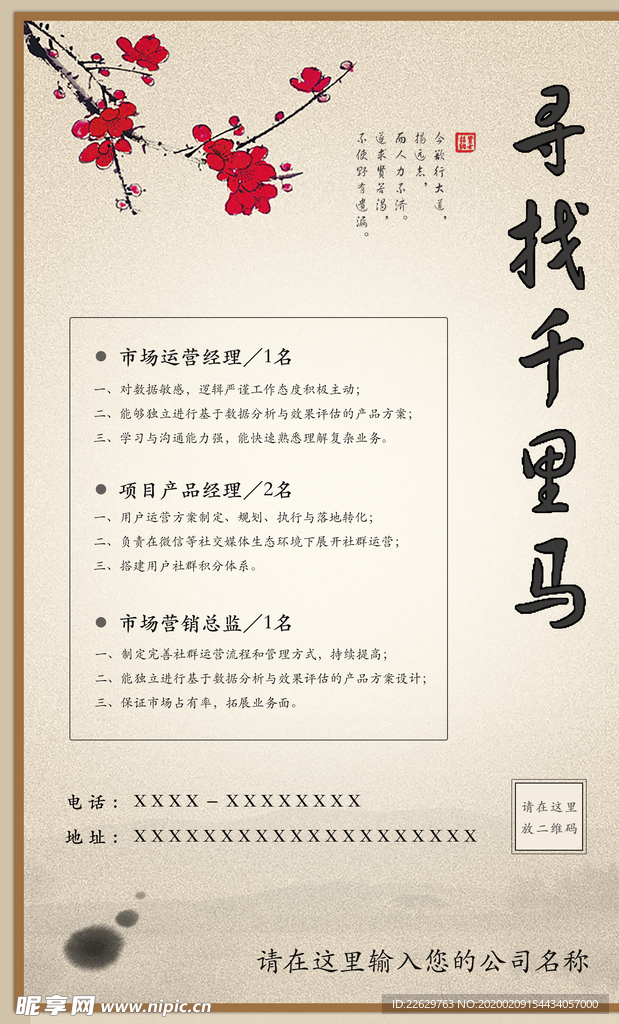 寻找千里马
今欲行大道，
揭远志，
而人力不济。
遂求贤若渴，
不使野有遗漏。
市场运营经理／1名
一、对数据敏感，逻辑严谨工作态度积极主动；
二、能够独立进行基于数据分析与效果评估的产品方案；
三、学习与沟通能力强，能快速熟悉理解复杂业务。
项目产品经理／2名
一、用户运营方案制定、规划、执行与落地转化；
二、负责在微信等社交媒体生态环境下展开社群运营；
三、搭建用户社群积分体系。
市场营销总监／1名
一、制定完善社群运营流程和管理方式，持续提高；
二、能独立进行基于数据分析与效果评估的产品方案设计；
三、保证市场占有率，拓展业务面。
电话：XXXX－XXXXXXXX
地址：XXXXXXXXXXXXXXXXXXXX
请在这里
放二维码
请在这里输入您的公司名称
昵享网 www.nipic.cn
ID:22629763 NO:20200209154434057000